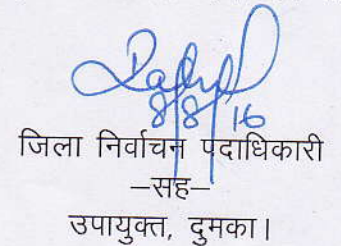 8/8/16
जिला निर्वाचन पदाधिकारी
–सह–
उपायुक्त, दुमका।